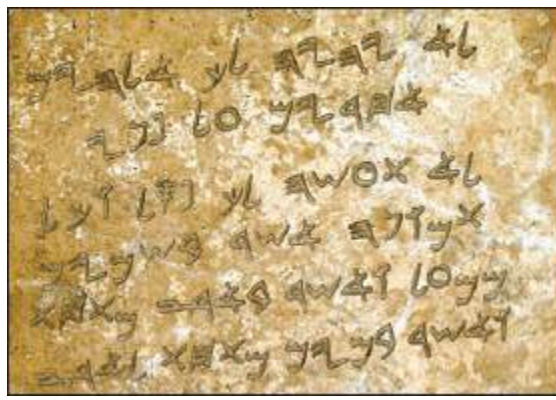 𐤋𐤀 𐤉𐤄𐤉𐤄 𐤋𐤊 𐤀𐤋𐤄𐤉𐤌
𐤀𐤇𐤓𐤉𐤌 𐤏𐤋 𐤐𐤍𐤉
𐤋𐤀 𐤕𐤏𐤔𐤄 𐤋𐤊 𐤐𐤎𐤋 𐤅𐤊𐤋
𐤕𐤌𐤅𐤍𐤄 𐤀𐤔𐤓 𐤁𐤔𐤌𐤉𐤌
𐤌𐤌𐤏𐤋 𐤅𐤀𐤔𐤓 𐤁𐤀𐤓𐤑 𐤌𐤕𐤇𐤕
𐤅𐤀𐤔𐤓 𐤁𐤌𐤉𐤌 𐤌𐤕𐤇𐤕 𐤋𐤀𐤓𐤑